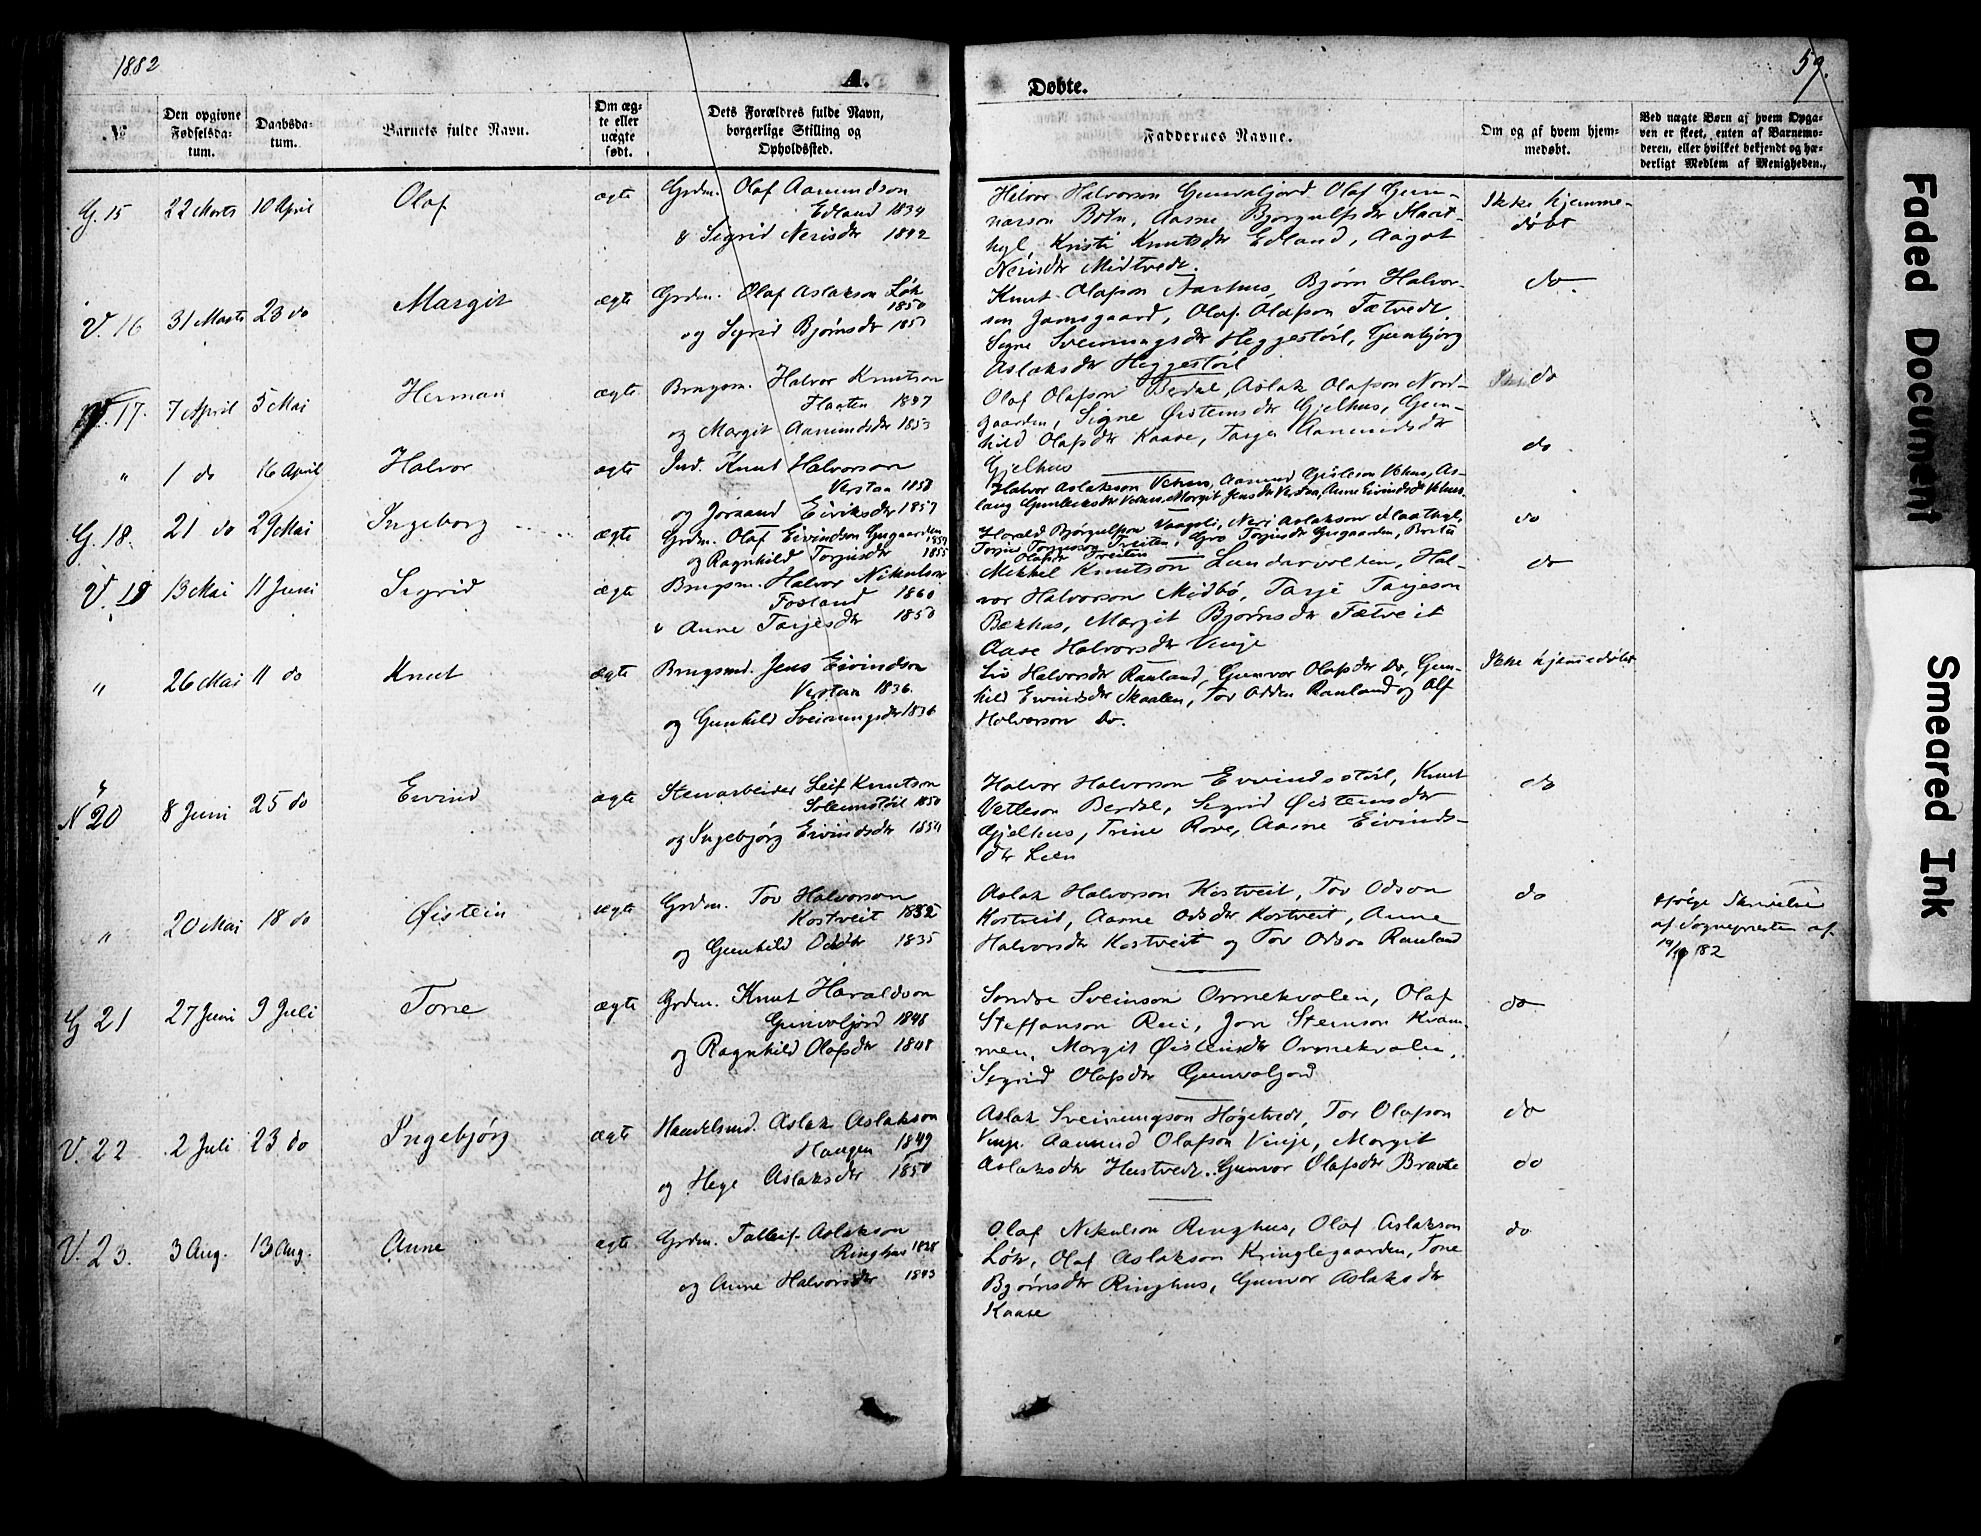 1882
59.
A.
Døbte.
№
Den opgivne Fødselsdatum.
Daabsdatum.
Barnets fulde Navn.
Om ægte eller uægte født.
Dets Forældres fulde Navn, borgerlige Stilling og Opholdssted.
Faddernes Navne.
Om og af hvem hjemmedøbt.
Ved uægte Børn af hvem Opgaven er skeet, enten af Barnemoderen, eller hvilket bekjendt og hæderligt Medlem af Menigheden.
G. 15
22 Marts
10 April
Olaf
ægte
Grdm. Olaf Aamundson
Edland 1834
& Sigrid Nerisdtr 1842
Helvor Halvorson Gunvaljord Olaf Gun-
narson Botn, Aasne Bjørgulfsdtr
Kristi Knutsdtr Edland, Aagot
Nerisdtr Midtvedt.
Ikke hjemme-
døbt
V. 16
31 Marts
23 do
Margit
ægte
Grdm. Olaf Aslakson Løk
1850
og Sigrid Bjørnsdr
Knut Olafson Aarhus, Bjørn Halvor-
son Jamsgaard, Olaf Olafson Fætvedt.
Signe Sveinungsdtr Heggestøil, Gunbjørg
Aslaksdtr Heggestøil
do.
17.
7 April
5 Mai
Herman
ægte
Brugsm. Halvor Knutson
Flaaten 1847
og Margit Aamundsdtr 1853
Olaf Olafson Berdal, Aslak Olafson Nord-
gaarden, Signe Øisteinsdtr Gjelhus, Gun-
hild Olafsdtr Kaase, Tarjer Aamundsdtr
Gjelhus
do
"
1 do
16 April
Halvor
ægte
Ind. Knut Halvorson
Verstaa 1858
og Joraand Eiriksdtr 1857
Halvor Aslakson Vehus, Aamund Gisleson Vehus, As-
laug Gunleiksdtr Vehus, Margit Jensdtr Verstaa, Anne Eivindsdtr Vehus
do
G. 18.
21 do
29 Mai
Ingeborg
ægte
Grdm. Olaf Eivindson Gugaarden
1857
og Ragnhild Torjusdtr 1855
Harald Bjørgulfson Vaagsli, Neri Aslakson
Torjus Torjusson Treiten, Gro Torjusdtr Gugaarden, Berta
Olafsdtr Treiten
do
V. 19
13 Mai
11 Juni
Sigrid
ægte
Brugsm. Halvor Nikulson
Fosland 1860
& Anne Tarjesdtr 1850
Mikkel Knutson Landarvolden, Hal-
vor Halvorson Midbø, Tarje Tarjeson
Bækhus, Margit Bjørnsdtr Fætveit
Aase Halvorsdtr Vinje
do
"
26 Mai
11 do
Knut
ægte
Brugsmd. Jens Eivindson
Verstaa 1836.
og Gunhild Sveinungsdtr 1836
Liv Halvorsdtr Rauland, Gunvor Olafsdtr do, Gun-
hild Eivindsdtr Skaalen, Tov Odden Rauland og Alf
Halvorson do.
Ikke hjemmedøbt
N 20
8 Juni
25 do
Eivind
ægte
Stenarbeider Leif Knutson
Soleimstøil 1850
og Ingebjørg Eivindsdtr 1854
Halvor Halvorson Eivindsstøil, Knut
Vetleson Berdal, Sigrid Øisteinsdtr
Gjelhus, Trine Rove, Aasne Eivinds-
dtr Lien
do
"
20 Mai
18 do
Øistein
ægte
Grdm. Tov Halvorson
Kostveit 1832
og Gunhild Oddtr 1835
Aslak Halvorson Kostveit, Tov Odson
Kostveit, Aasne Odsdtr Kostveit, Anne
Halvorsdtr Kostveit og Tov Odson Rauland
do
ifølge Skrivelse
af Sognepresten af
82
G 21
27 Juni
9 Juli
Tone
ægte
Grdm. Knut Haraldson
Gunvaljord 1848
og Ragnhild Olafsdtr 1848
Sondre Sveinson Ormekvalen, Olaf
Steffanson Rui, Jon Steinson Kvam-
men, Margit Øisteinsdtr Ormekvalen,
Sigrid Olafsdtr Gunvaljord
do
V. 22
2 Juli
23 do
Ingebjørg
ægte
Handelsmd. Aslak Aslakson
Haugen 1849
og Hege Aslaksdtr 1850
Aslak Sveinungson Høgetvedt, Tor Olafson
Vinje. Aamund Olafson Vinje, Margit
Aslaksdtr Hustvedt. Gunvor Olafsdtr Bravte
do
do
V. 23.
3 Aug.
13 Aug.
Anne
ægte
Grdm. Talleif Aslakson
Ringhus 1838
og Anne Halvorsdtr 1843
Olaf Nikulson Ringhus, Olaf Aslakson
Løk, Olaf Aslakson Kringlegaarden, Tone
Bjørnsdtr Ringhus, Gunvor Aslaksdtr
Kaase
do
Faded Document
Smeared Ink